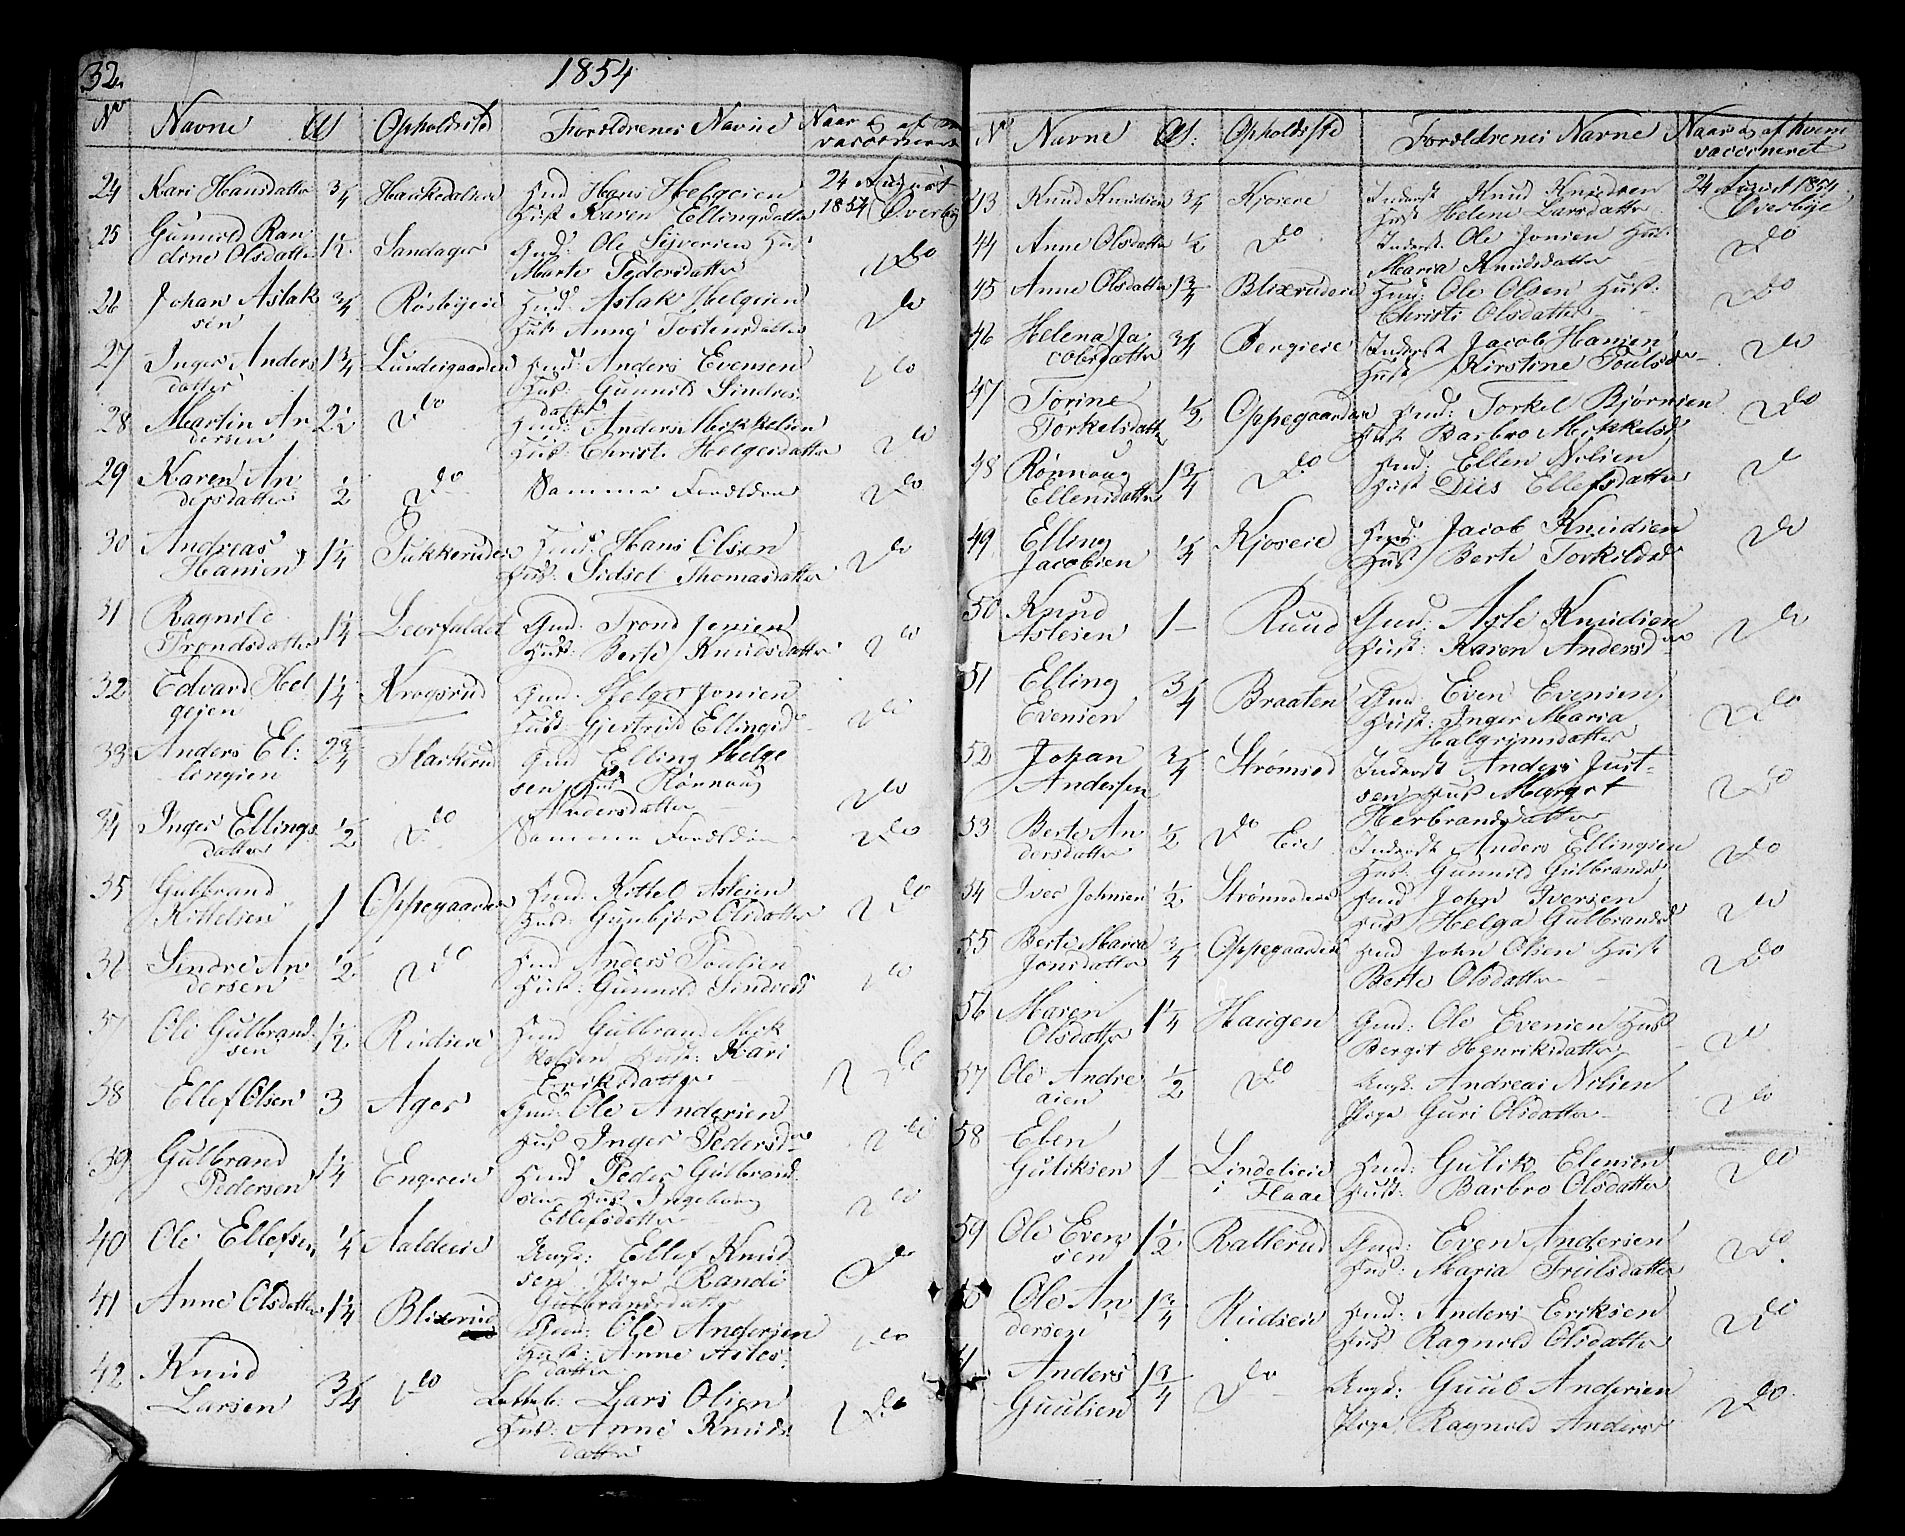 32.
1854
No Navne Al Opholdsted Forældrenes Navne Naar & af
vaccineret
24 Kari Hansdatter 3/4 Haukedalen Hmd Hans Helgesen 24 August
Hust Karen Ellingsdatter 1854 Øverby
25 Gunnild Ran
dine Olsdatter 1 1/2 Sandager Gmd: Ole Syversen Hus
Marte Pedersdatter Do
26 Johan Aslak
sen 3/4 Røsbyeie Hmd: Aslak Helgesen
Hust Anne Tostensdatter Do
27 Inger Anders
datter 1 3/4 Lundesgaarden Hmd: Anders Evensen
Hus: Gunnild Sindres
datter Do
28 Martin An
dersen 2 1/2 Do Hmd: Anders Mikkelsen
Hus: Christi Helgesdatter Do
29 Karen An
dersdatter 1/2 Do Samme Forældre Do
30 Andreas
Hansen 1 1/4 Hmd: Hans Olsen
Hus: Sidsel Thomasdatter Do
31 Ragnild
Trondsdatter 1 3/4 Leorfaldet Gmd: Trond Jensen
Hust: Berte Knudsdatter Do
32 Edvard Hel
gesen 1 1/4 Krogsrud Gmd: Helge Jonsen
Hust: Gjertrud Ellingsd Do
33 Anders El:
lingsen 2 3/4 Flaskerud Gmd Elling Helge
sen Hus Rønnaug
Andersdatter Do
34 Inger Ellings
datter 1/2 Do Samme Forældre Do
35 Gulbrand
Kittelsen 1 Oppegaarden Hmd: Kittel Aslesen
Hus: Gunbjør Olsdatter Do
36 Sindre An
dersen 1/2 Do Hmd Anders Poulsen
Hust: Gunnild Sindresd Do
37 Ole Gulbrand
sen 1 1/2 Rudseie Hmd Gulbrand Mik
kelsen Hust: Kari
Eriksdatter Do
38 Ellef Olsen 3 Ager Gmd: Ole Andersen
Hus Inger Pedersd Do
39 Gulbrand
Pedersen 1 1/4 Engeeie Hmd Peder Gulbrand
sen Hus Ingeborg
Ellefsdatter Do
40 Ole Ellefsen 1/4 Ungk: Ellef Knud
sen Pige Randi
Gulbrandsdatter Do
41 Anne Olsdatter 1 1/4 Blixrud Gmd: Ole Andersen
Hust: Anne Asles:
datter Do
42 Knud
Larsen 3/4 Do Lars Olsen
Hus: Anne Knuds
datter Do
No Navne Al: Opholdsted Forældrenes Navne Naar & af hvem
vaccineret
43 Knud Knudsen 3/4 Kjoseie Inderst Knud Knudsen 24 August 1854
Hust Helene Larsdatter Øverbye
44 Anne Olsdatter 1/2 Do Inderst. Ole Jonsen Hus:
Maria Knudsdatter Do
45 Anne Olsdatter 1 3/4 Blixrudeie Hmd: Ole Olsen Hust:
Christi Olsdatter Do
46 Helena Ja
cobsdatter 3/4 Bergseie Inderst Jacob Hansen
Hust Kirstine Poulsd Do
47 Torine
Torkelsdatter 1/2 Oppegaarden Hmd: Torkel Bjørnsen
Hust Barbro Mikkelsd Do
48 Rønnaug
Ellensdatter 1 3/4 Do Hmd: Ellen Nilsen
Hust Ellefsdatter Do
49 Elling
Jacobsen 1/4 Kjoseie Hmd: Jacob Knudsen
Hust Berte Torkildsd Do
50 Knud
Aslesen 1 Ruud Gmd: Asle Knudsen
Hust: Karen Andersd Do
51 Elling
Evensen 3/4 Braaten Gmd Even Evensen
Hust: Inger Maria
Halgrimsdatter Do
52 Johan
Andersen 3/4 Strømsod Inderst Anders Just-
sen Hus Margrt
Herbrandsdatter Do
53 Berte An
dersdatter 1/2 Do Eie Inderst Anders Ellingsen
Hus: Gunnild Gulbrandsd Do
54 Iver Johnsen 1/2 Hmd John Iversen
Hus Helga Gulbrandsd Do
55 Berte Maria
Jonsdatter 3/4 Oppegaarden Hmd John Olsen Hust
Berte Olsdatter Do
56 Maren
Olsdatter 1 1/4 Haugen Gmd: Ole Evensen Hus
Bergit Henriksdatter Do
57 Ole Andre
asen 1/2 Do Ungk: Andreas Nilsen
Pige Guri Olsdatter Do
58 Eben
Guliksen 1 Lindelieie
i Flaae Hmd: Gulik Ebensen
Hust: Barbro Olsdatter Do
59 Ole Even
sen 1 1/2 Rallerud Gmd: Even Andersen
Hus: Maria Truilsdatter Do
60 Ole An
dersen 1 3/4 Rudseie Hmd: Anders Eriksen
Hus Ragnild Olsdatter Do
61 Anders
Guulsen 1 3/4 Do Ungk: Guul Andersen
Pige Ragnild Andersd Do